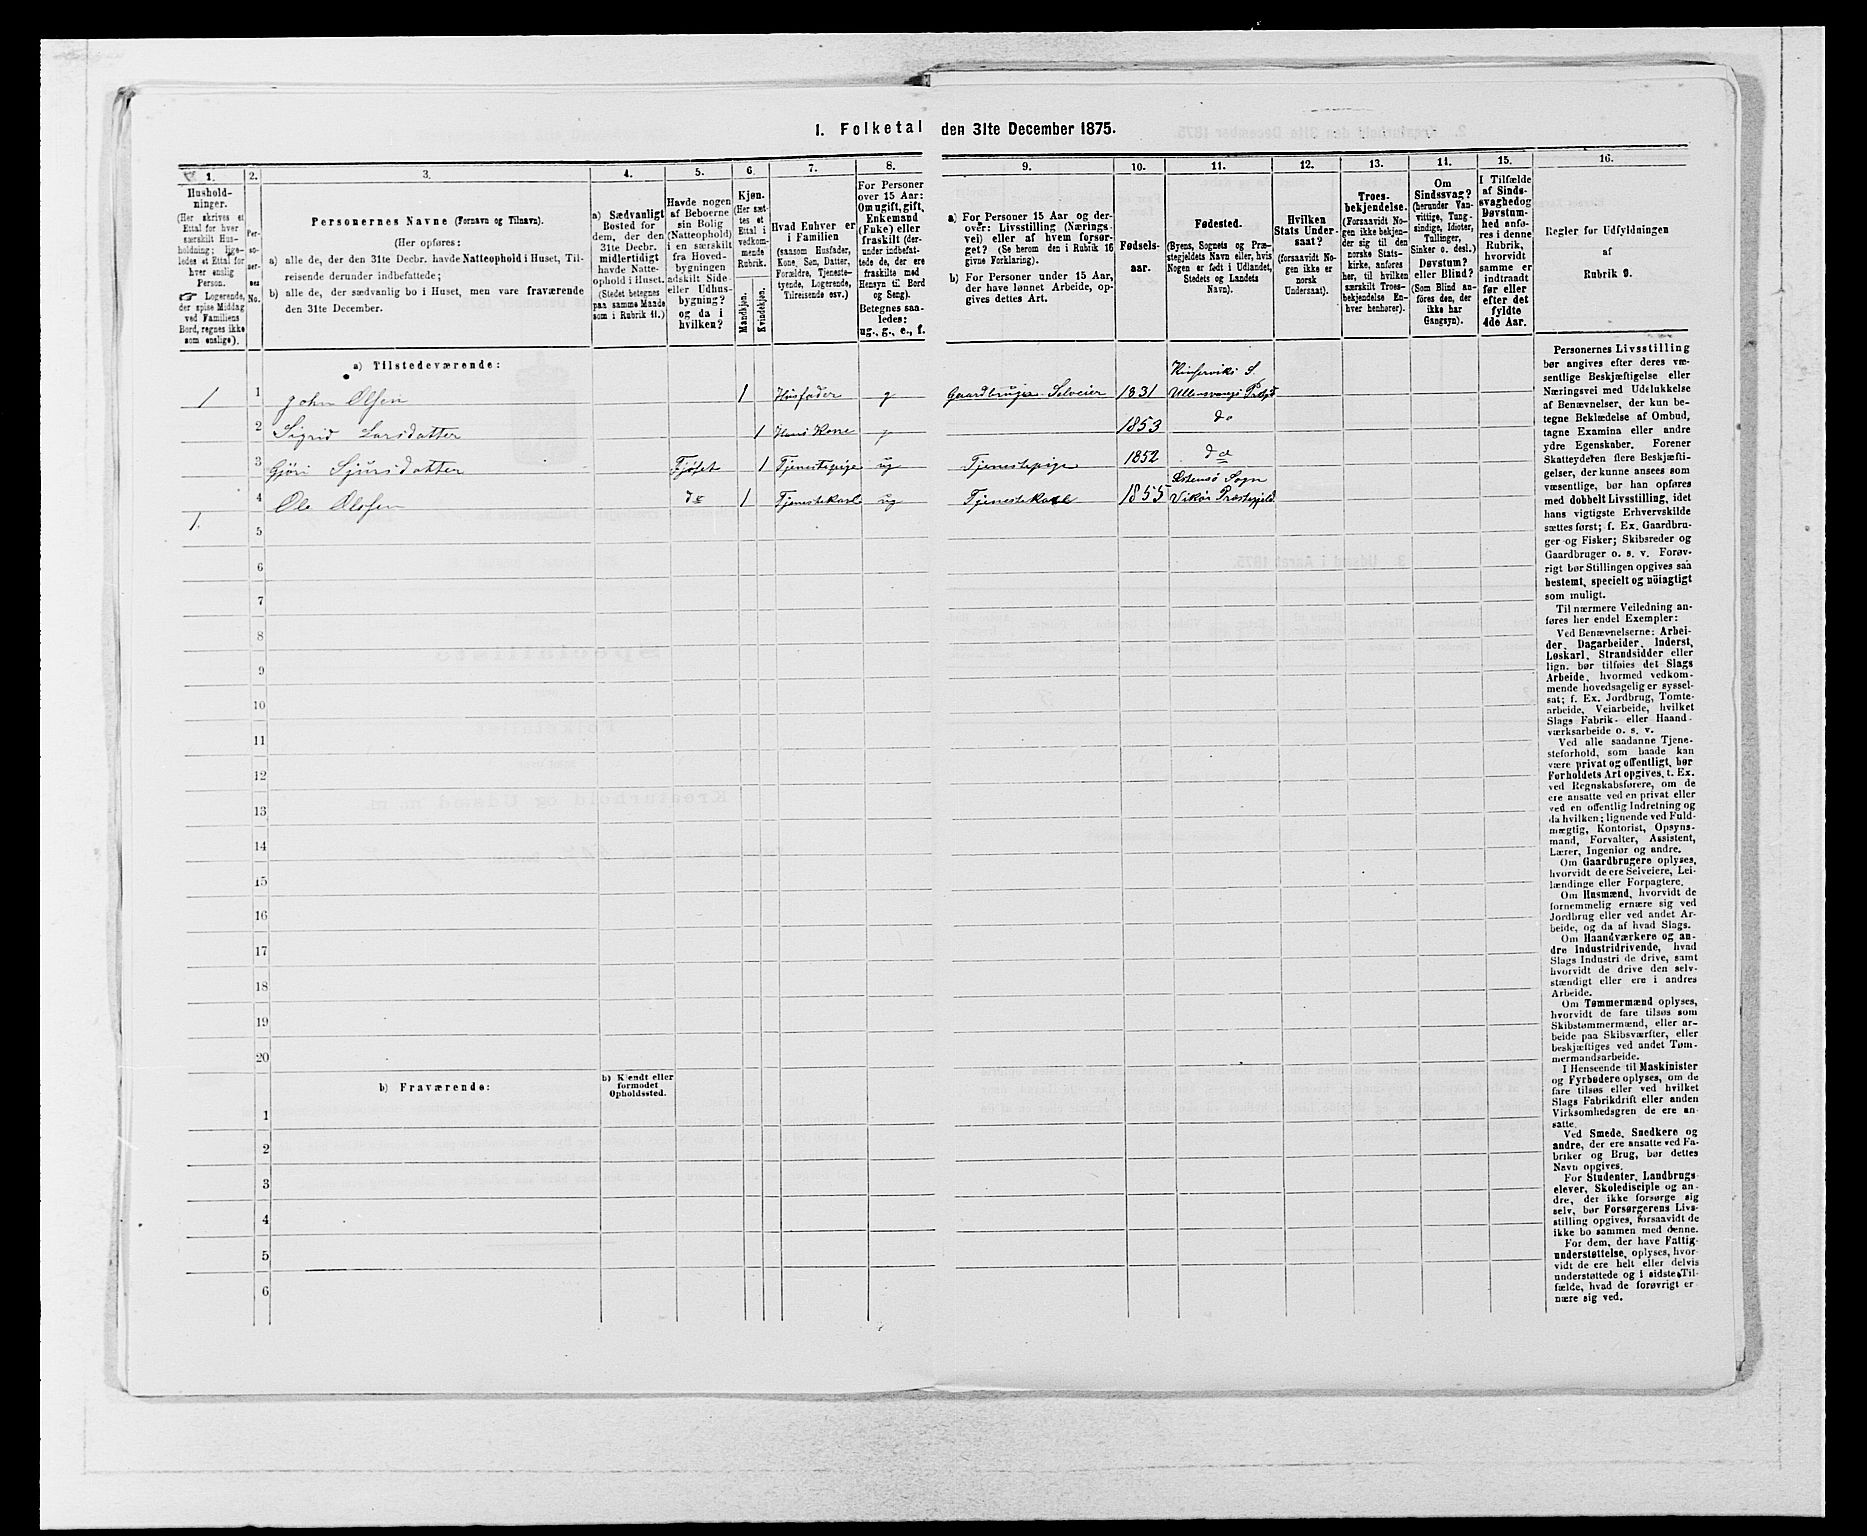 1. Folketal den 31te December 1875.
1.
Hushold-
ninger.
(Her skrives et
Ettal for hver
særskilt Hus-
holdning; lige-
ledes et Ettal for
hver enslig
Person.
☞ Logerende,
der spise Middag
ved Familiens
Bord, regnes ikke
som enslige).
2.
Per-
so-
ner-
nes
No.
3.
Personernes Navne (Fornavn og Tilnavn).
(Her opføres:
a) alle de, der den 31te Decbr. havde Natteophold i Huset, Til-
reisende derunder indbefattede;
b) alle de, der sædvanlig bo i Huset, men vare fraværende
den 31te December.
4.
a) Sædvanligt
Bosted for
dem, der den
31te Decbr.
midlertidigt
havde Natte-
ophold i Huset.
(Stedet betegnes
paa samme Maade
som i Rubrik 11.)
5.
Havde nogen
af Beboerne
sin Bolig
(Natteophold)
i en særskilt
fra Hoved-
bygningen
adskilt Side-
eller Udhus-
bygning?
og da i
hvilken?
6.
Kjøn.
(Her sæt-
tes et
Ettal i
vedkom-
mende
Rubrik.
Mandkjøn.
Kvindekjøn.
7.
Hvad Enhver er
i Familien
(saasom Husfader,
Kone, Søn, Datter,
Forældre, Tjeneste-
tyende, Logerende,
Tilreisende osv.)
8.
For Personer
over 15 Aar:
Om ugift, gift,
Enkemand
(Enke) eller
fraskilt (der-
under indbefat-
tede de, der ere
fraskilte med
Hensyn til Bord
og Seng).
Betegnes saa-
ledes:
ug., g., e., f.
9.
a) For Personer 15 Aar og der-
over: Livsstilling (Nærings-
vei) eller af hvem forsør-
get? (Se herom den i Rubrik 16
givne Forklaring).
b) For Personer under 15 Aar,
der have lønnet Arbeide, op-
gives dettes Art.
10.
Fødsels-
aar.
11.
Fødested.
(Byens, Sognets og Præ-
stegjeldets Navn eller, hvis
Nogen er født i Udlandet,
Stedets og Landets
Navn).
12.
Hvilken
Stats Under-
saat?
(forsaavidt No-
gen ikke er
norsk
Undersaat).
13.
Troes-
bekjendelse.
(Forsaavidt No-
gen ikke bekjen-
der sig til den
norske Stats-
kirke, anføres
her, til hvilken
særskilt Troes-
bekjendelse En-
hver henhører).
14.
Om
Sindssvag?
(herunder Van-
vittige, Tung-
sindige, Idioter,
Tullinger,
Sinker o. desl.)
Døvstum?
eller Blind?
(Som Blind an-
føres den, der
ikke har
Gangsyn).
15.
I Tilfælde
af Sinds-
svaghed og
Døvstum-
hed anfø-
res i denne
Rubrik,
hvorvidt
samme er
indtraadt
før eller
efter det
fyldte
4de Aar.
16.
Regler for Udfyldningen
af
Rubrik 9.
a) Tilstedeværende:
1 1 John Olsen 1 Husfader g Gaardbruger Selveier 1831 Kinserviks S. Ullensvangs Præstgd
2 Sigrid Larsdatter 1 Hans Kone g 1853 do
3 Gjøri Sjursdatter Fjøset 1 Tjenestepige ug Tjenestepige 1852 do
4 Ole Olsen do 1 Tjenestekarl ug Tjenestekarl 1855 Østensø Sogn Vikørs Præstegjeld
1.
5
6
7
8
9
10
11
12
13
14
15
16
17
18
19
20
b) Fraværende:
b) Kjendt eller
formodet
Opholdssted.
1
2
3
4
5
6
Personernes Livsstilling
bør angives efter deres væ-
sentlige Beskjæftigelse eller
Næringsvei med Udelukkelse
af Benævnelser, der kun be-
tegne Beklædelse af Ombud,
tagne Examina eller andre
ydre Egenskaber. Forener
Skatteyderen flere Beskjæfti-
gelser, der kunne ansees som
væsentlige, bør han opføres
med dobbelt Livsstilling, idet
hans vigtigste Erhvervskilde
sættes først; f. Ex. Gaardbru-
ger og Fisker; Skibsreder og
Gaardbruger o. s. v. Forøv-
rigt bør Stillingen opgives saa
bestemt, specielt og nöiagtigt
som muligt.
Til nærmere Veiledning an-
føres her endel Exempler:
Ved Benævnelserne: Arbei-
der, Dagarbeider, Inderst,
Løskarl, Strandsidder eller
lign. bør tilføies det Slags
Arbeide, hvormed vedkom-
mende hovedsagelig er syssel-
sat; f. Ex. Jordbrug, Tomte-
arbeide, Veiarbeide, hvilket
Slags Fabrik- eller Haand-
værksarbeide o. s. v.
Ved alle saadanne Tjene-
steforhold, som baade kan
være privat og offentligt, bør
Forholdets Art opgives, t. Ex.
ved Regnskabsførere, om de
ere ansatte ved en privat eller
ved en offentlig Indretning og
da hvilken; lignende ved Fuld-
mægtig, Kontorist, Opsyns-
mand, Forvalter, Assistent,
Lærer, Ingeniør og andre.
Om Gaardbrugere oplyses,
hvorvidt de ere Selveiere, Lei-
lændinge eller Forpagtere.
Om Husmænd, hvorvidt de
fornemmelig ernære sig ved
Jordbrug eller ved andet Ar-
beide, og da af hvad Slags.
Om Haandværkere og an-
dre Industridrivende, hvad
Slags Industri de drive, samt
hvorvidt de drive den selv-
stændigt eller ere i andres
Arbeide.
Om Tømmermænd oplyses,
hvorvidt de fare tilsøs som
Skibstømmermænd, eller ar-
beide paa Skibsværfter, eller
beskjæftiges ved andet Tøm-
mermandsarbeide.
I Henseende til Maskinister
og Fyrbødere oplyses, om de
fare tilsøs eller ved hvilket
Slags Fabrikdrift eller anden
Virksomhedsgren de ere an-
satte.
Ved Smede, Snedkere og
andre, der ere ansatte ved Fa-
briker og Brug, bør dettes
Navn opgives.
For Studenter, Landbrugs-
elever, Skoledisciple og an-
dre, der ikke forsørge sig
selv, bør Forsørgerens Livs-
stilling opgives, forsaavidt de
ikke bo sammen med denne.
For dem, der have Fattig-
understøttelse, oplyses, hvor-
vidt de ere helt eller delvis
understøttede og i sidste Til-
fælde, hvad de forøvrigt er-
nære sig ved.